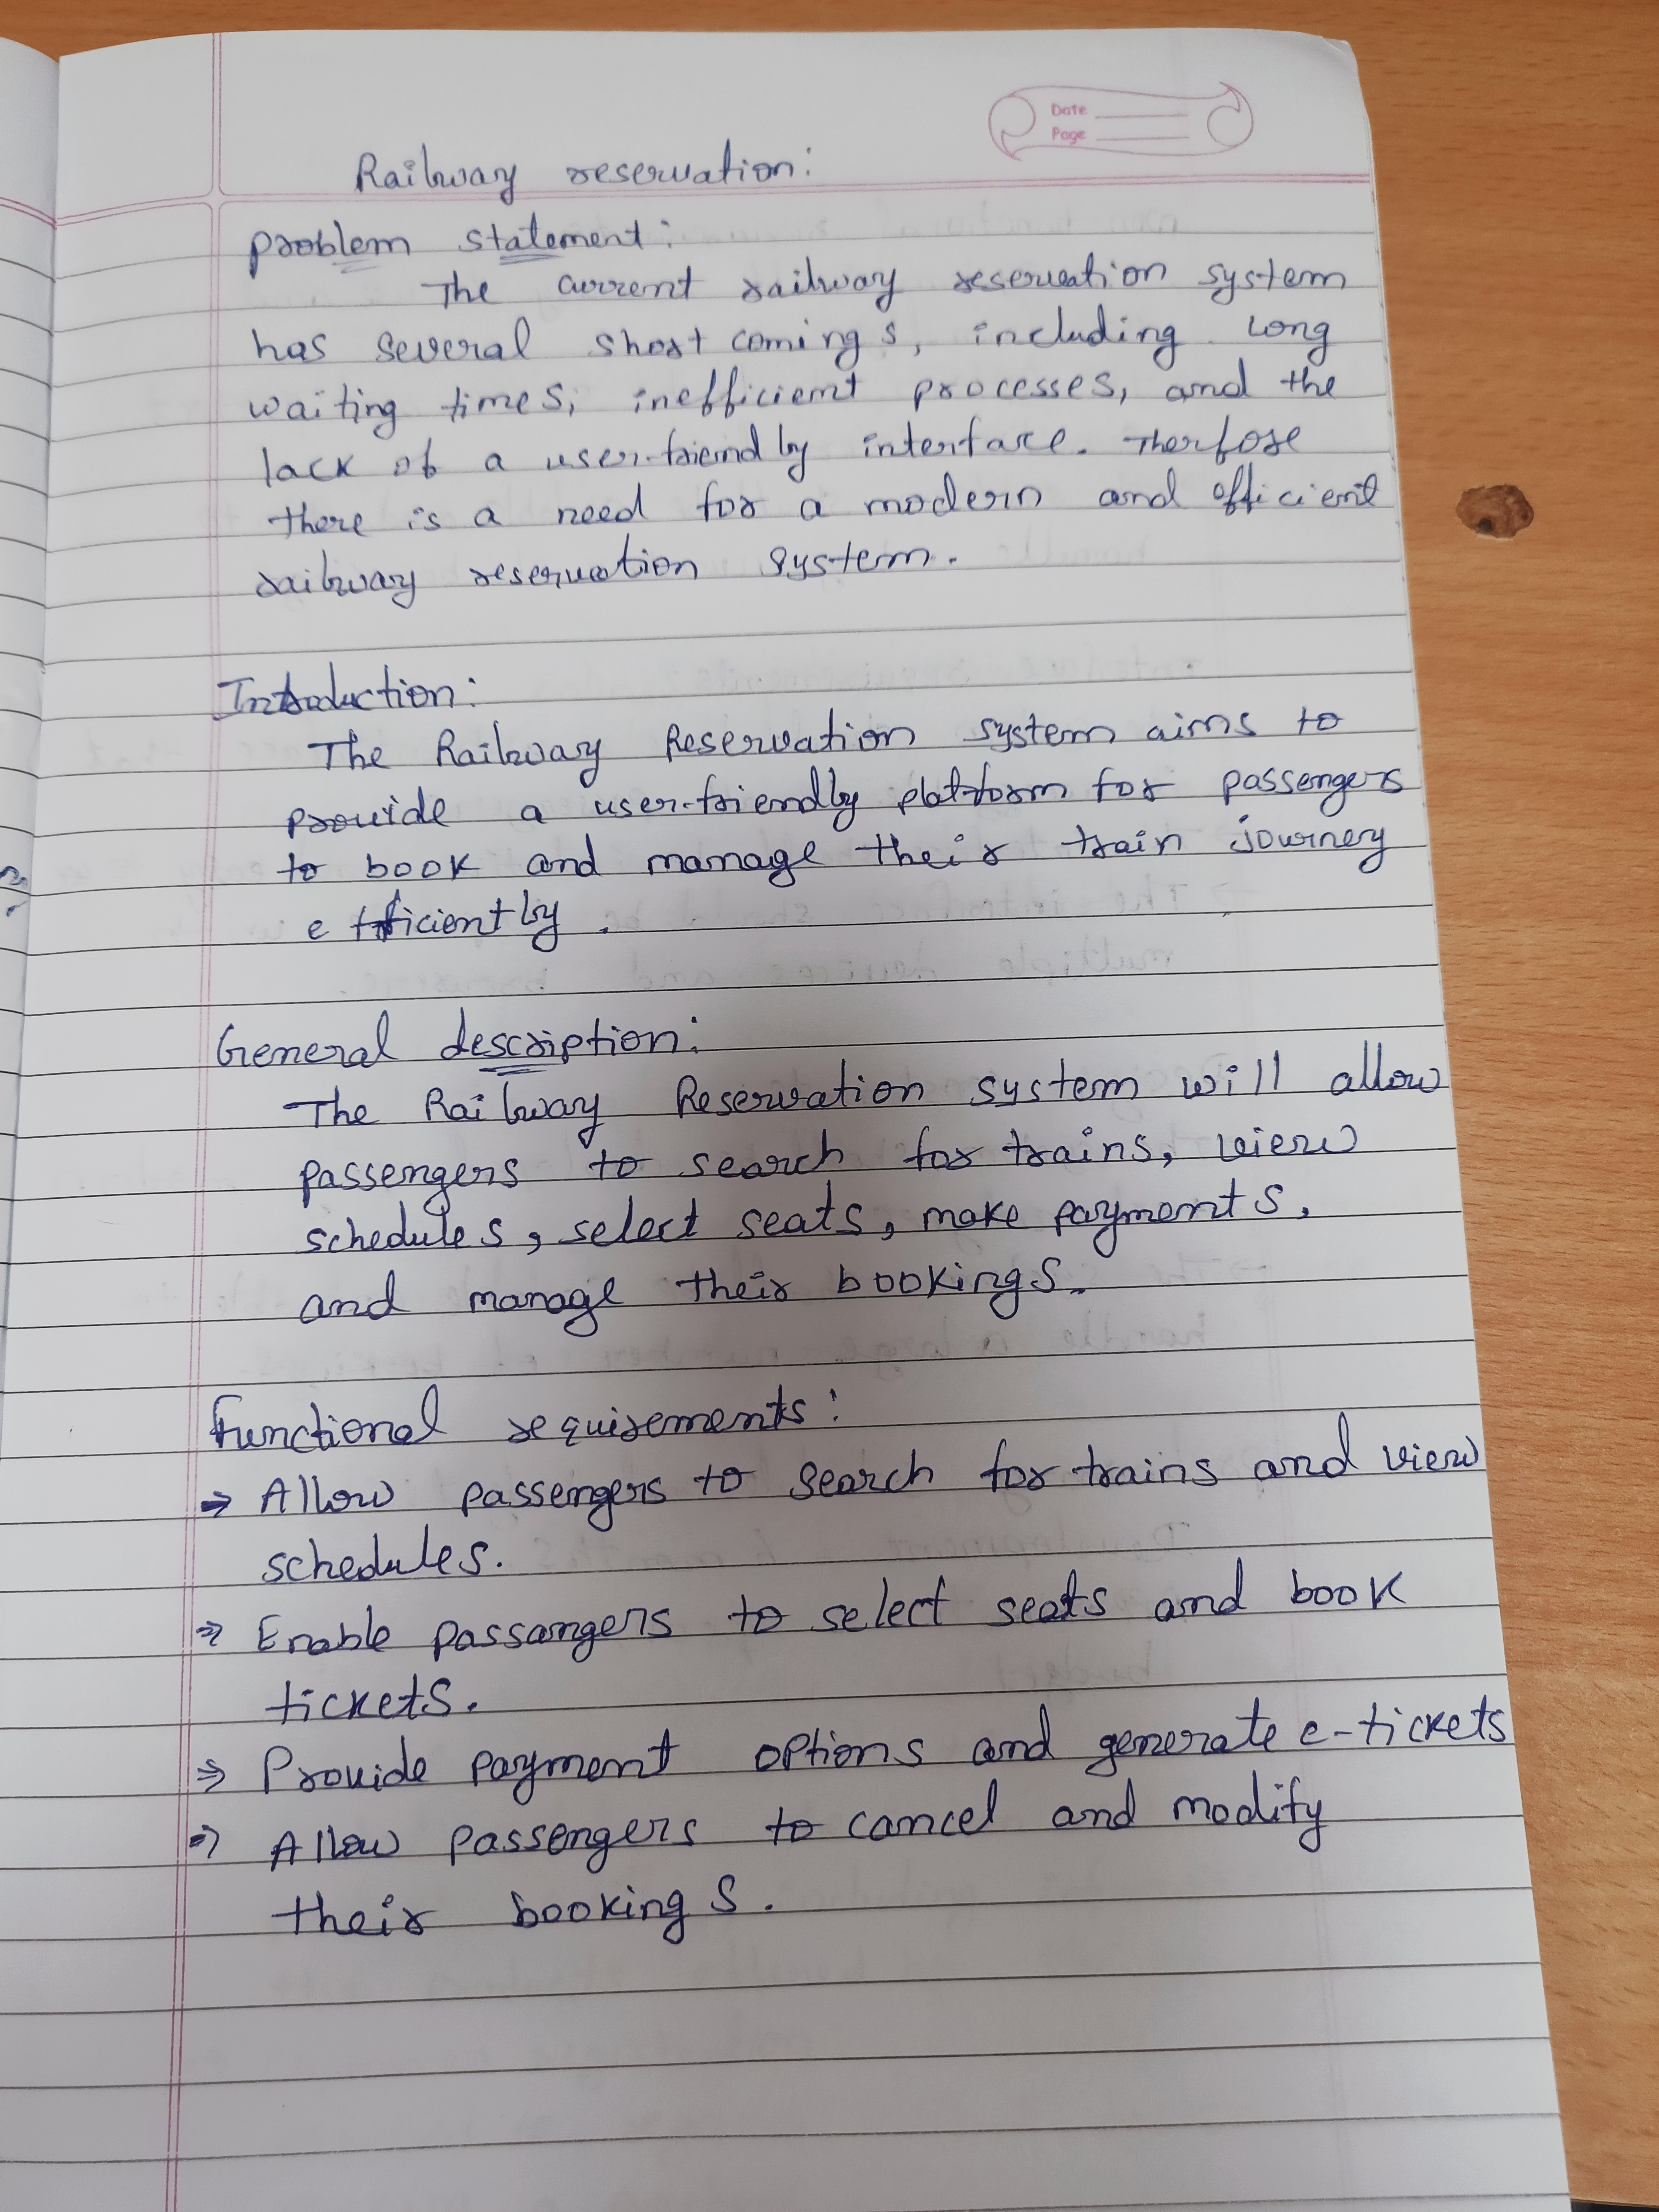 Date
Page
Railway reservation:
problem statement:
The current railway reservation system
has several short comings, including long
waiting times, inefficient processes, and the
lack of a user-friendly interface. Therfore
there is a need for a modern and efficient
railway reservation system.
Introduction:
The Railway Reservation system aims to
provide a user-friendly platform for passengers
to book and manage their train journey
efficiently.
General description:
The Railway Reservation system will allow
passengers to search for trains, view
schedules, select seats, make payments,
and manage their bookings.
Functional requirements:
⇒ Allow passengers to search for trains and view
schedules.
⇒ Enable passangers to select seats and book
tickets.
⇒ Provide payment options and generate e-tickets
⇒ Allow passengers to cancel and modify
their bookings.